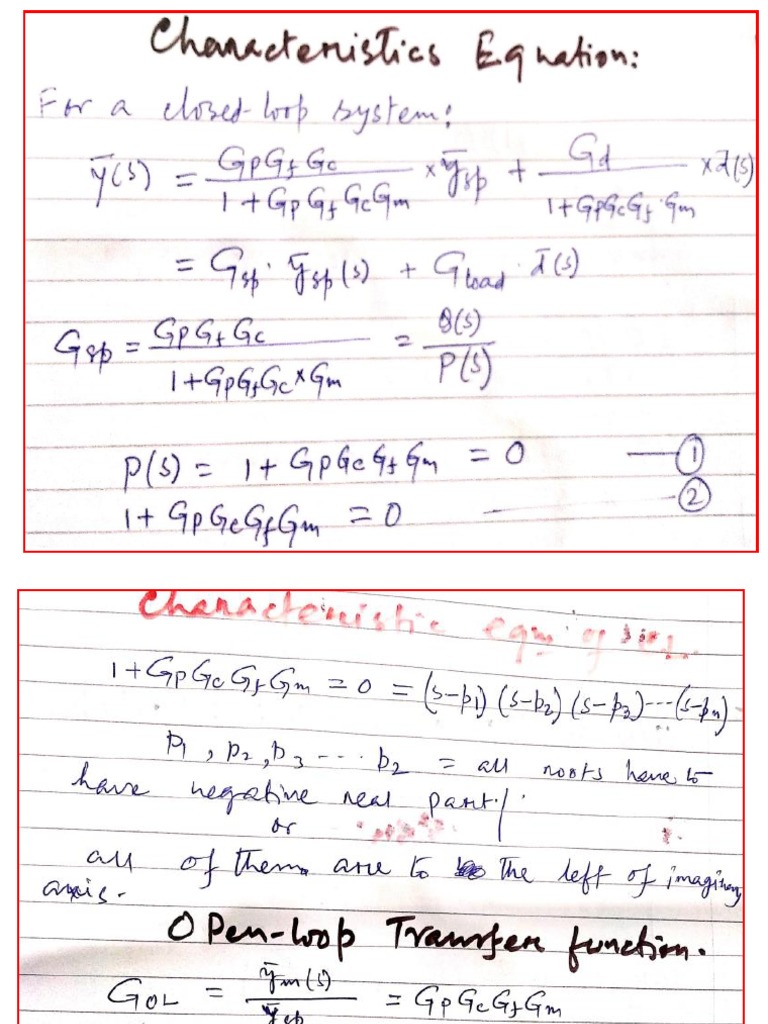 Characteristics Equation:
For a closed-loop system:
ȳ(s) = GpGfGc / 1+GpGfGcGm × ȳsp + Gd / 1+GpGcGf·Gm × d̄(s)
= Gsp· ȳsp(s) + Gload · d̄(s)
Gsp = GpGfGc / 1+GpGfGc×Gm = Q(s) / P(s)
P(s) = 1+ GpGcGfGm = 0 — ①
1+ GpGcGfGm = 0 — ②
Characteristic eqn of
1+GpGcGfGm = 0 = (s-p1) (s-p2) (s-p3)---(s-pn)
P1, p2, p3 ---- p2 = all roots have to
have negative real part/.
or
all of them are to the left of imaginary
axis.
Open-loop Transfer function.
GOL = ȳm(s) / ȳsp = GpGcGfGm